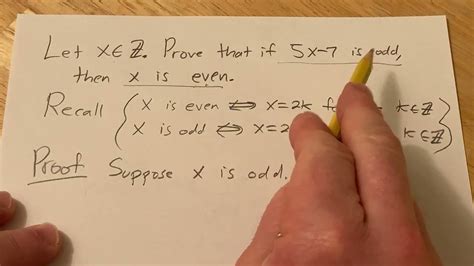 Let x∈ℤ. Prove that if 5x-7 is odd,
then x is even.
Recall { x is even ⇔ x=2k k∈ℤ }
x is odd ⇔ x=2 k∈ℤ
Proof Suppose x is odd.